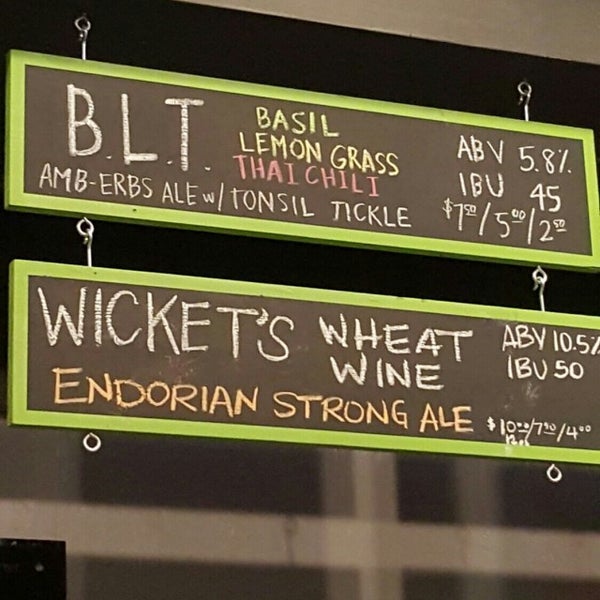 B.L.T.
BASIL
LEMON GRASS
THAI CHILI
AMB-ERBS ALE w/ TONSIL TICKLE
ABV 5.8%
IBU 45
$7⁵⁰/5⁰⁰/2⁵⁰
WICKET'S WHEAT
WINE
ENDORIAN STRONG ALE
ABV 10.5%
IBU 50
$10⁰⁰/7⁵⁰/4⁰⁰
12oz